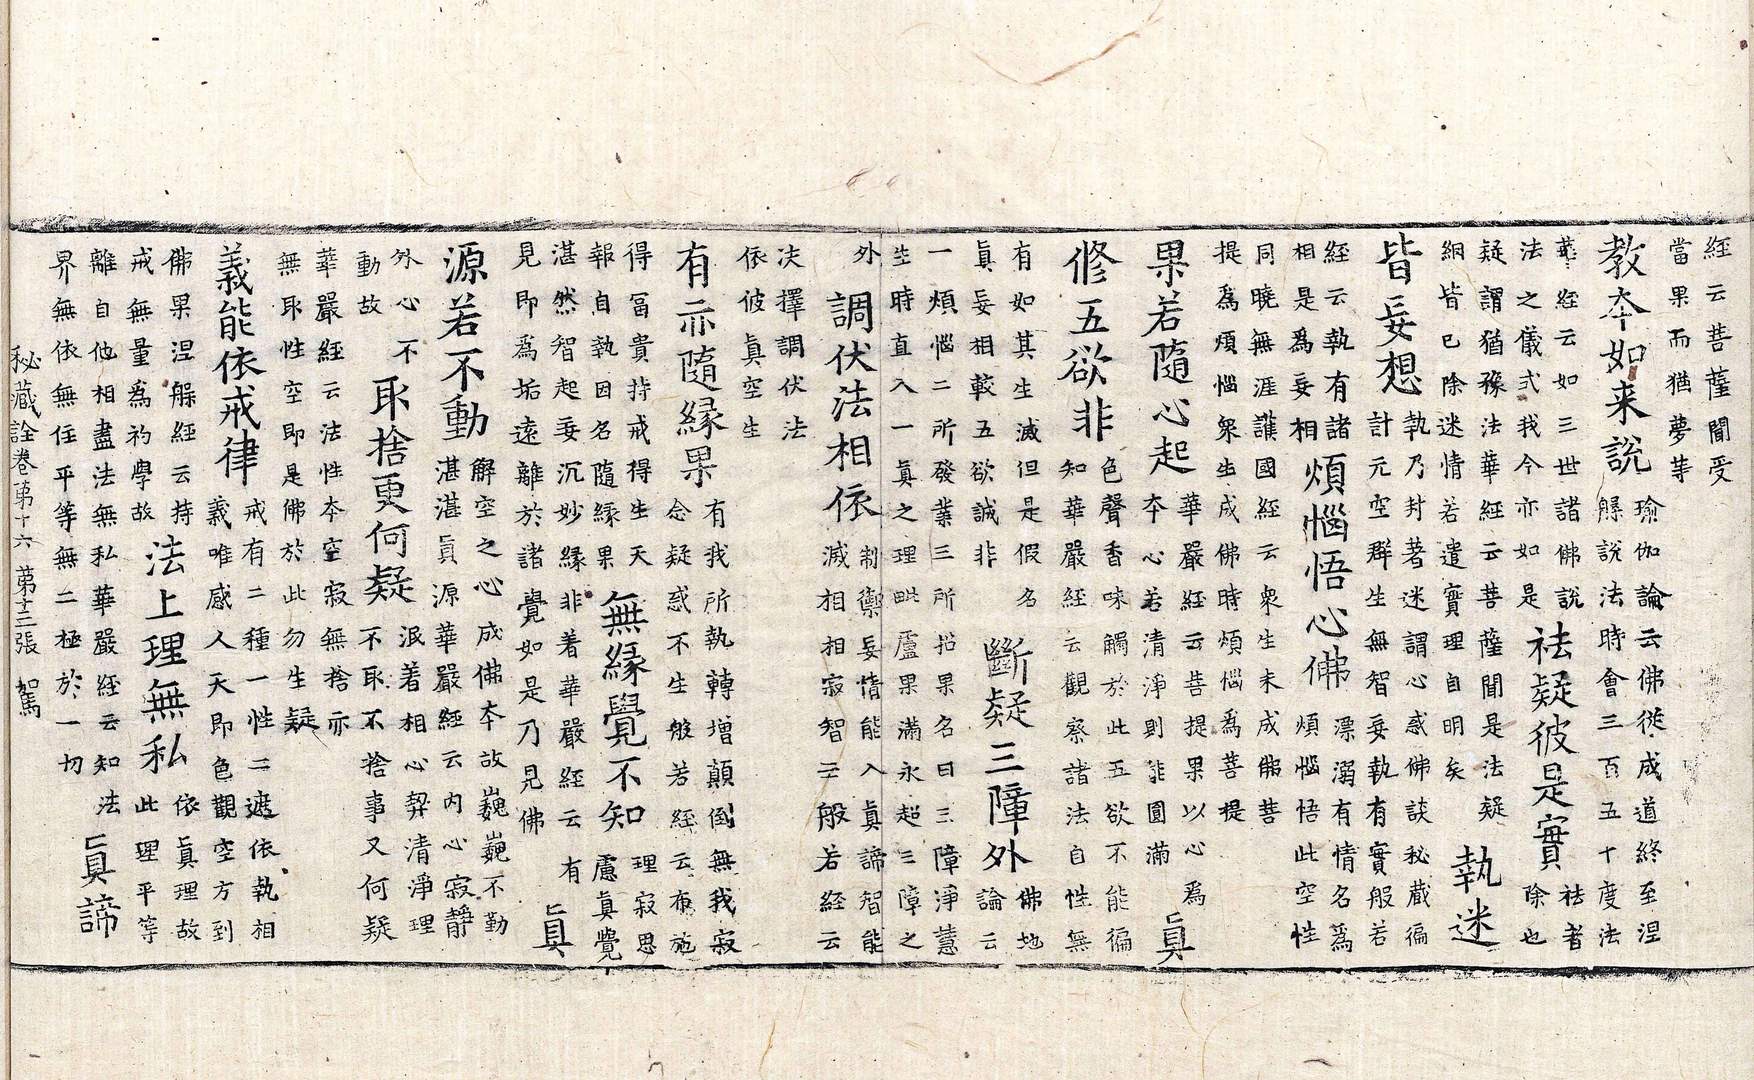 經云菩薩聞受
當果而猶夢等
教本如来說
瑜伽論云佛從成道終至涅
槃說法時會三百五十度法
華經云如三世諸佛說
法之儀式我今亦如是
祛疑彼是實
祛者
除也
疑謂猶豫法華經云菩薩聞是法疑
網皆已除迷情若遣實理自明矣
執迷
皆妄想
執乃封著迷謂心惑佛談秘藏徧
計元空群生無智妄執有實般若
經云執有諸
相是爲妄相
煩惱悟心佛
漂溺有情名爲
煩惱悟此空性
同曉無涯護國經云衆生未成佛菩
提爲煩惱衆生成佛時煩惱爲菩提
果若隨心起
華嚴經云菩提果以心爲
本心若清淨則能圓滿
眞
修五欲非
色聲香味觸於此五欲不能徧
知華嚴經云觀察諸法自性無
有如其生滅但是假名
眞妄相較五欲誠非
斷疑三障外
佛地
論云
一煩惱二所發業三所招果名曰三障淨慧
生時直入一眞之理毗盧果滿永超三障之
外
調伏法相依
制禦妄情能入眞諦智能
滅相相寂智云般若經云
决擇調伏法
依彼眞空生
有亦隨緣果
有我所執轉增顛倒無我寂
念疑惑不生般若經云布施
得冨貴持戒得生天
報自執因名隨緣果
無緣覺不知
理寂思
慮眞覺
湛然智起妄沉妙緣非着華嚴經云有
見即爲垢遠離於諸覺如是乃見佛
眞
源若不動
解空之心成佛本故巍巍不動
湛湛眞源華嚴經云內心寂靜
外心不
動故
取捨更何疑
泯着相心契清淨理
不取不捨事又何疑
華嚴經云法性本空寂無捨亦
無取性空即是佛於此勿生疑
義能依戒律
戒有二種一性二遮依執相
義唯感人天即色觀空方到
佛果涅槃經云持
戒無量爲初學故
法上理無私
依眞理故
此理平等
離自他相盡法無私華嚴經云知法
界無依無住平等無二極於一切
眞諦
秘藏詮卷第十六 第十三張 駕